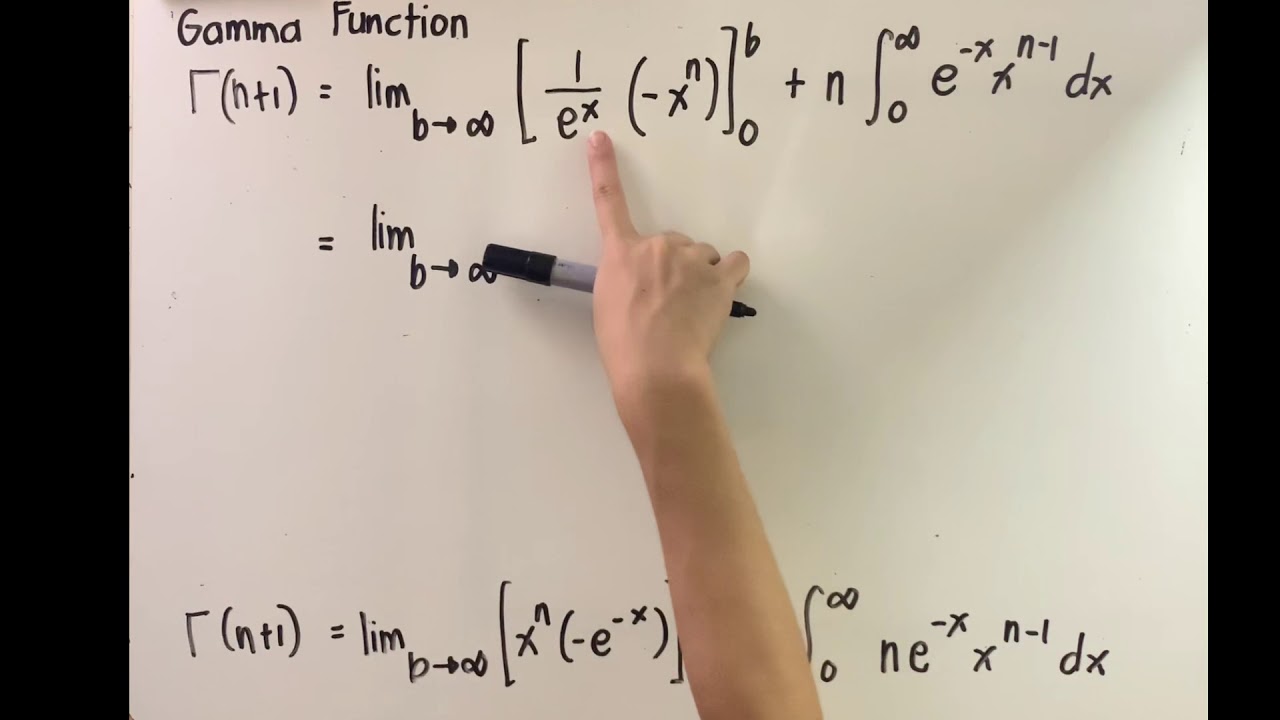 Gamma Function
Γ(n+1) = lim b→∞ [ 1/e^x (-x^n) ]_0^b + n ∫_0^∞ e^-x x^n-1 dx
= lim b→∞
Γ(n+1) = lim b→∞ [ x^n (-e^-x) ] ∫_0^∞ n e^-x x^n-1 dx